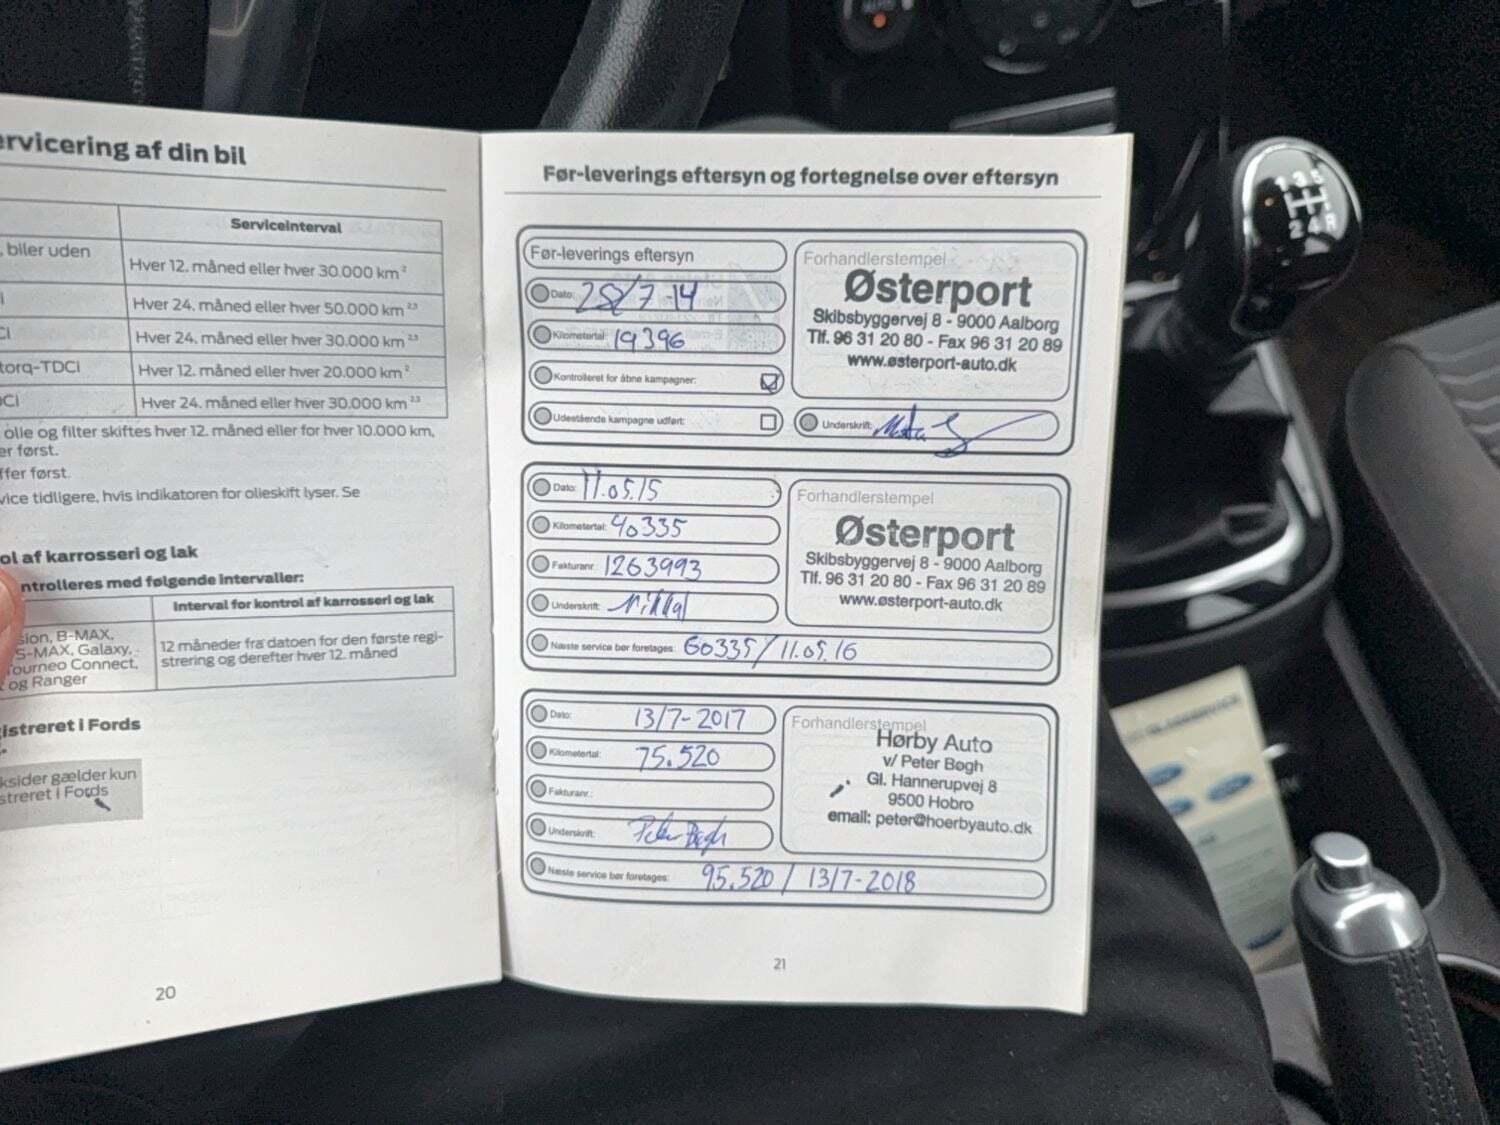 rvicering af din bil
Serviceinterval
, biler uden
Hver 12. måned eller hver 30.000 km 2
Hver 24. måned eller hver 50.000 km 2,3
CI
Hver 24. måned eller hver 30.000 km 2,3
torq-TDCi
Hver 12. måned eller hver 20.000 km 2
Hver 24. måned eller hver 30.000 km 2,3
olie og filter skiftes hver 12. måned eller for hver 10.000 km,
er først.
ffer først.
vice tidligere, hvis indikatoren for olieskift lyser. Se
ol af karrosseri og lak
ntrolleres med følgende intervaller:
Interval for kontrol af karrosseri og lak
sion, B-MAX,
S-MAX, Galaxy,
ourneo Connect,
og Ranger
12 måneder fra datoen for den første regi-
strering og derefter hver 12. måned
istreret i Fords
ksider gælder kun
streret i Fords
20
Før-leverings eftersyn og fortegnelse over eftersyn
Før-leverings eftersyn
Dato: 28/7-14
Kilometertal: 19396
Kontrolleret for åbne kampagner:
Udestående kampagne udført:
Forhandlerstempel
Østerport
Skibsbyggervej 8 - 9000 Aalborg
Tlf. 96 31 20 80 - Fax 96 31 20 89
www.østerport-auto.dk
Underskrift:
Dato: 11.05.15
Kilometertal: 40335
Fakturanr.: 1263993
Underskrift:
Næste service bør foretages: 60335/11.05.16
Forhandlerstempel
Østerport
Skibsbyggervej 8 - 9000 Aalborg
Tlf. 96 31 20 80 - Fax 96 31 20 89
www.østerport-auto.dk
Dato: 13/7-2017
Kilometertal: 75.520
Fakturanr.:
Underskrift: Peter Bøgh
Næste service bør foretages: 95.520 / 13/7-2018
Forhandlerstempel
Hørby Auto
v/ Peter Bøgh
Gl. Hannerupvej 8
9500 Hobro
email: peter@hoerbyauto.dk
21
1 3 5
2 4 R